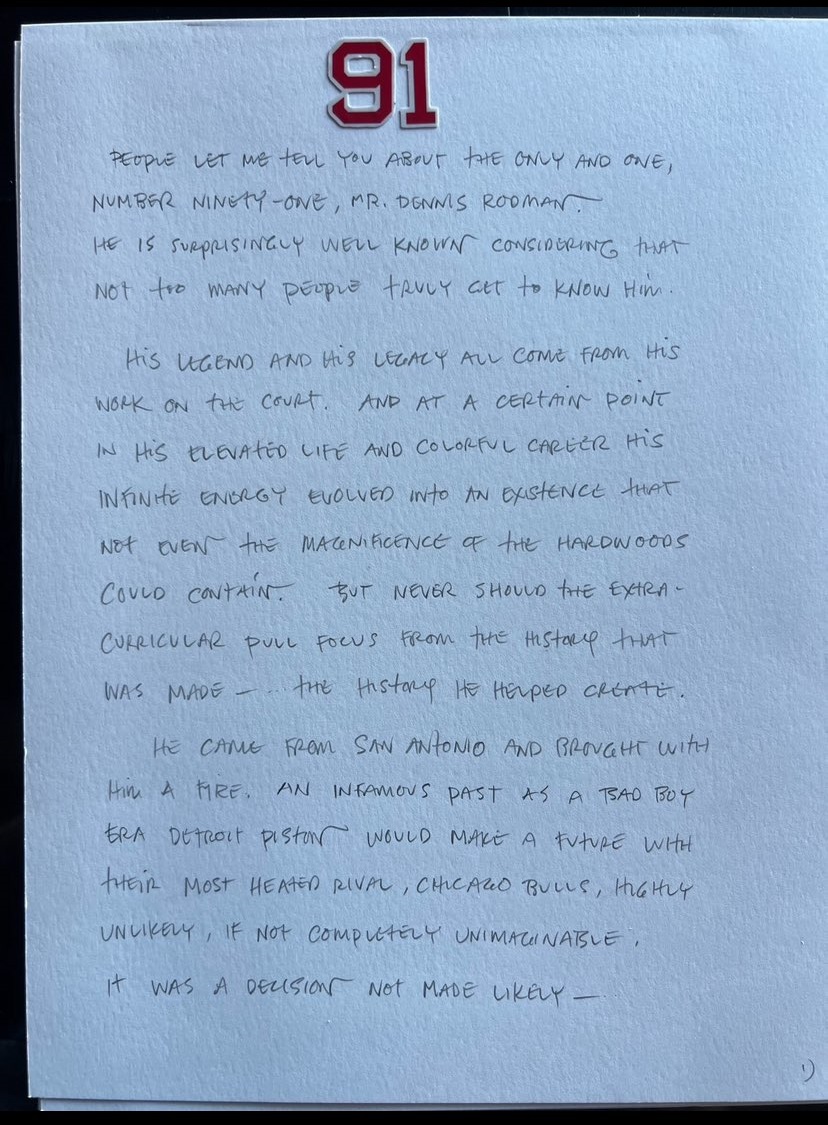 91
PEOPLE LET ME TELL YOU ABOUT THE ONLY AND ONE,
NUMBER NINETY-ONE, MR. DENNIS RODMAN.
HE IS SURPRISINGLY WELL KNOWN CONSIDERING THAT
NOT TOO MANY PEOPLE TRULY GET TO KNOW HIM.
HIS LEGEND AND HIS LEGACY ALL COME FROM HIS
WORK ON THE COURT. AND AT A CERTAIN POINT
IN HIS ELEVATED LIFE AND COLORFUL CAREER HIS
INFINITE ENERGY EVOLVED INTO AN EXISTENCE THAT
NOT EVEN THE MAGNIFICENCE OF THE HARDWOODS
COULD CONTAIN. BUT NEVER SHOULD THE EXTRA-
CURRICULAR PULL FOCUS FROM THE HISTORY THAT
WAS MADE — ... THE HISTORY HE HELPED CREATE.
HE CAME FROM SAN ANTONIO AND BROUGHT WITH
HIM A FIRE. AN INFAMOUS PAST AS A BAD BOY
ERA DETROIT PISTON WOULD MAKE A FUTURE WITH
THEIR MOST HEATED RIVAL, CHICAGO BULLS, HIGHLY
UNLIKELY, IF NOT COMPLETELY UNIMAGINABLE.
IT WAS A DECISION NOT MADE LIKELY —
1)